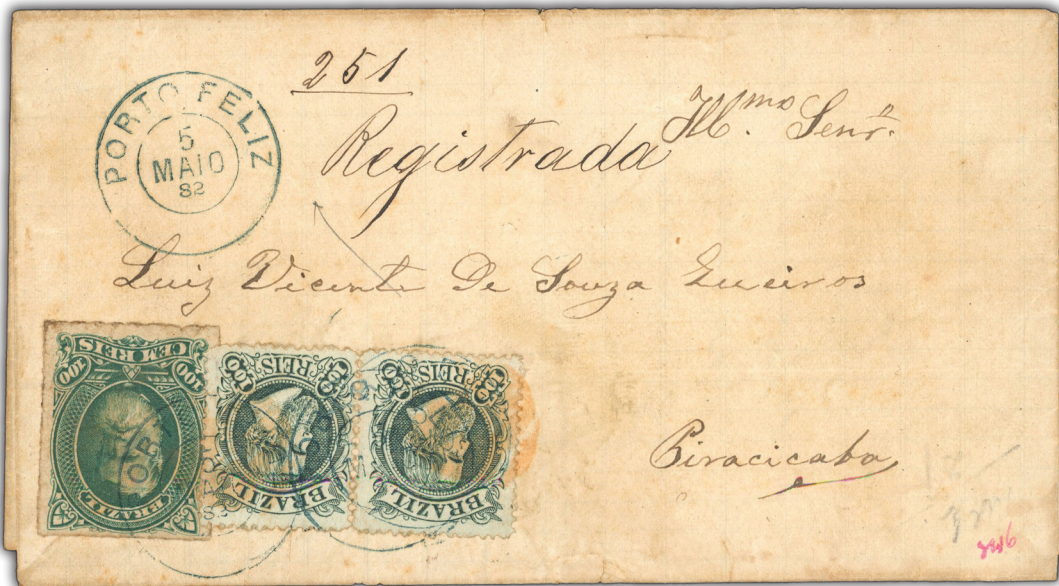 251
PORTO FELIZ
5
MAIO
82
Registrada
Ill.mo Senr.
Luiz Vicente De Souza Queiros
CEM REIS
100 100
BRAZIL
REIS
BRAZIL
REIS
BRAZIL
Piracicaba